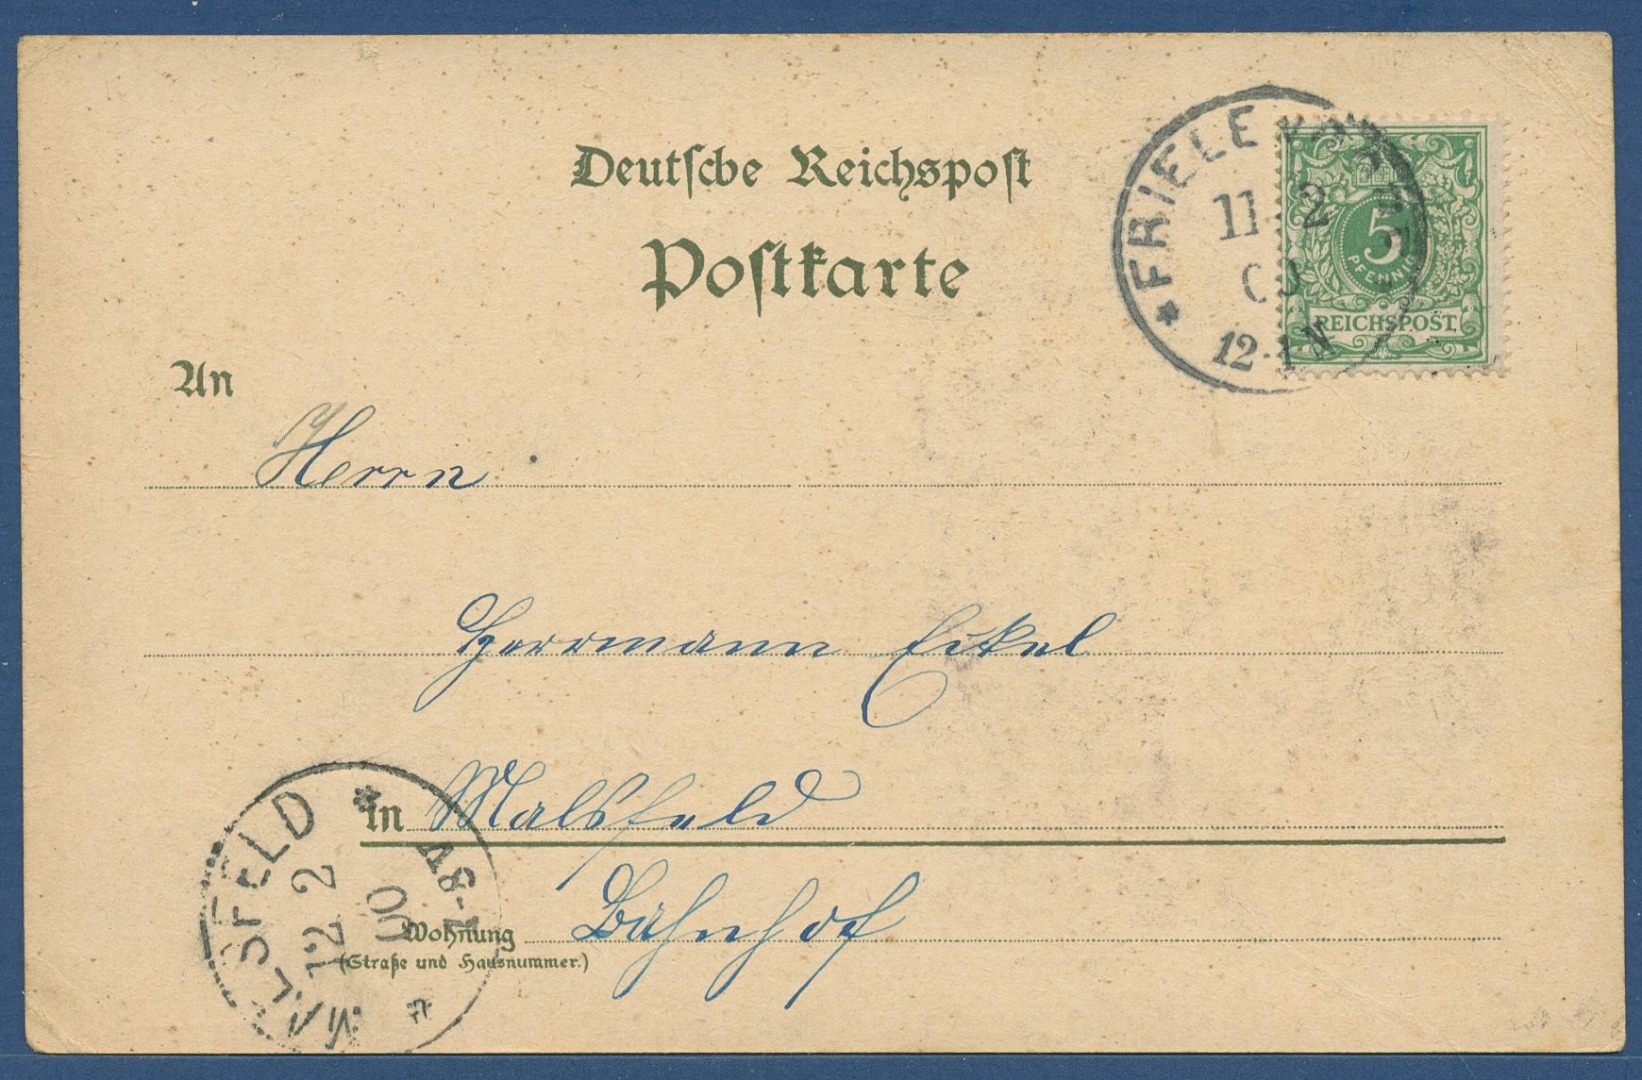 Deutsche Reichspost
Postkarte
FRIELE
11 2
00
12-1 N
5
PFENNIG
REICHSPOST
An
Herrn
Herrmann Eikel
in Malsfeld
Bahnhof
Wohnung
(Straße und Hausnummer.)
MALSFELD
12 2
00
7-8V